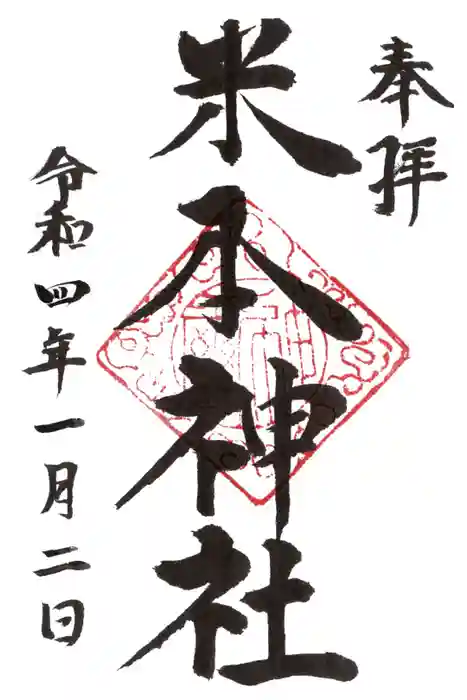 奉拝
米本神社
令和四年一月二日